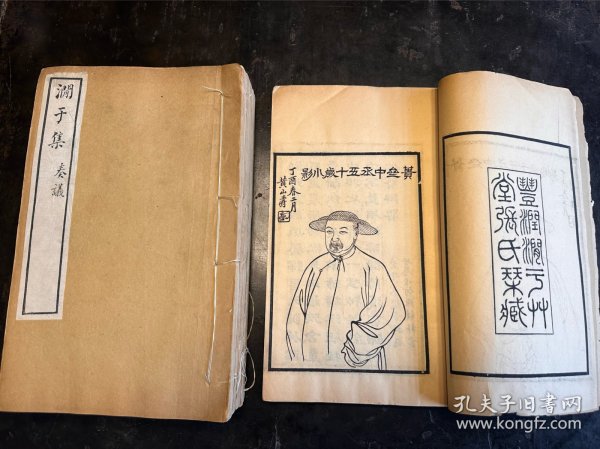 澗于集 奏議
蕢亝中丞五十歲小影
丁酉春二月
黃山壽
豐潤澗于艸
堂張氏栞臧
孔夫子旧书网
www.kongfz.com